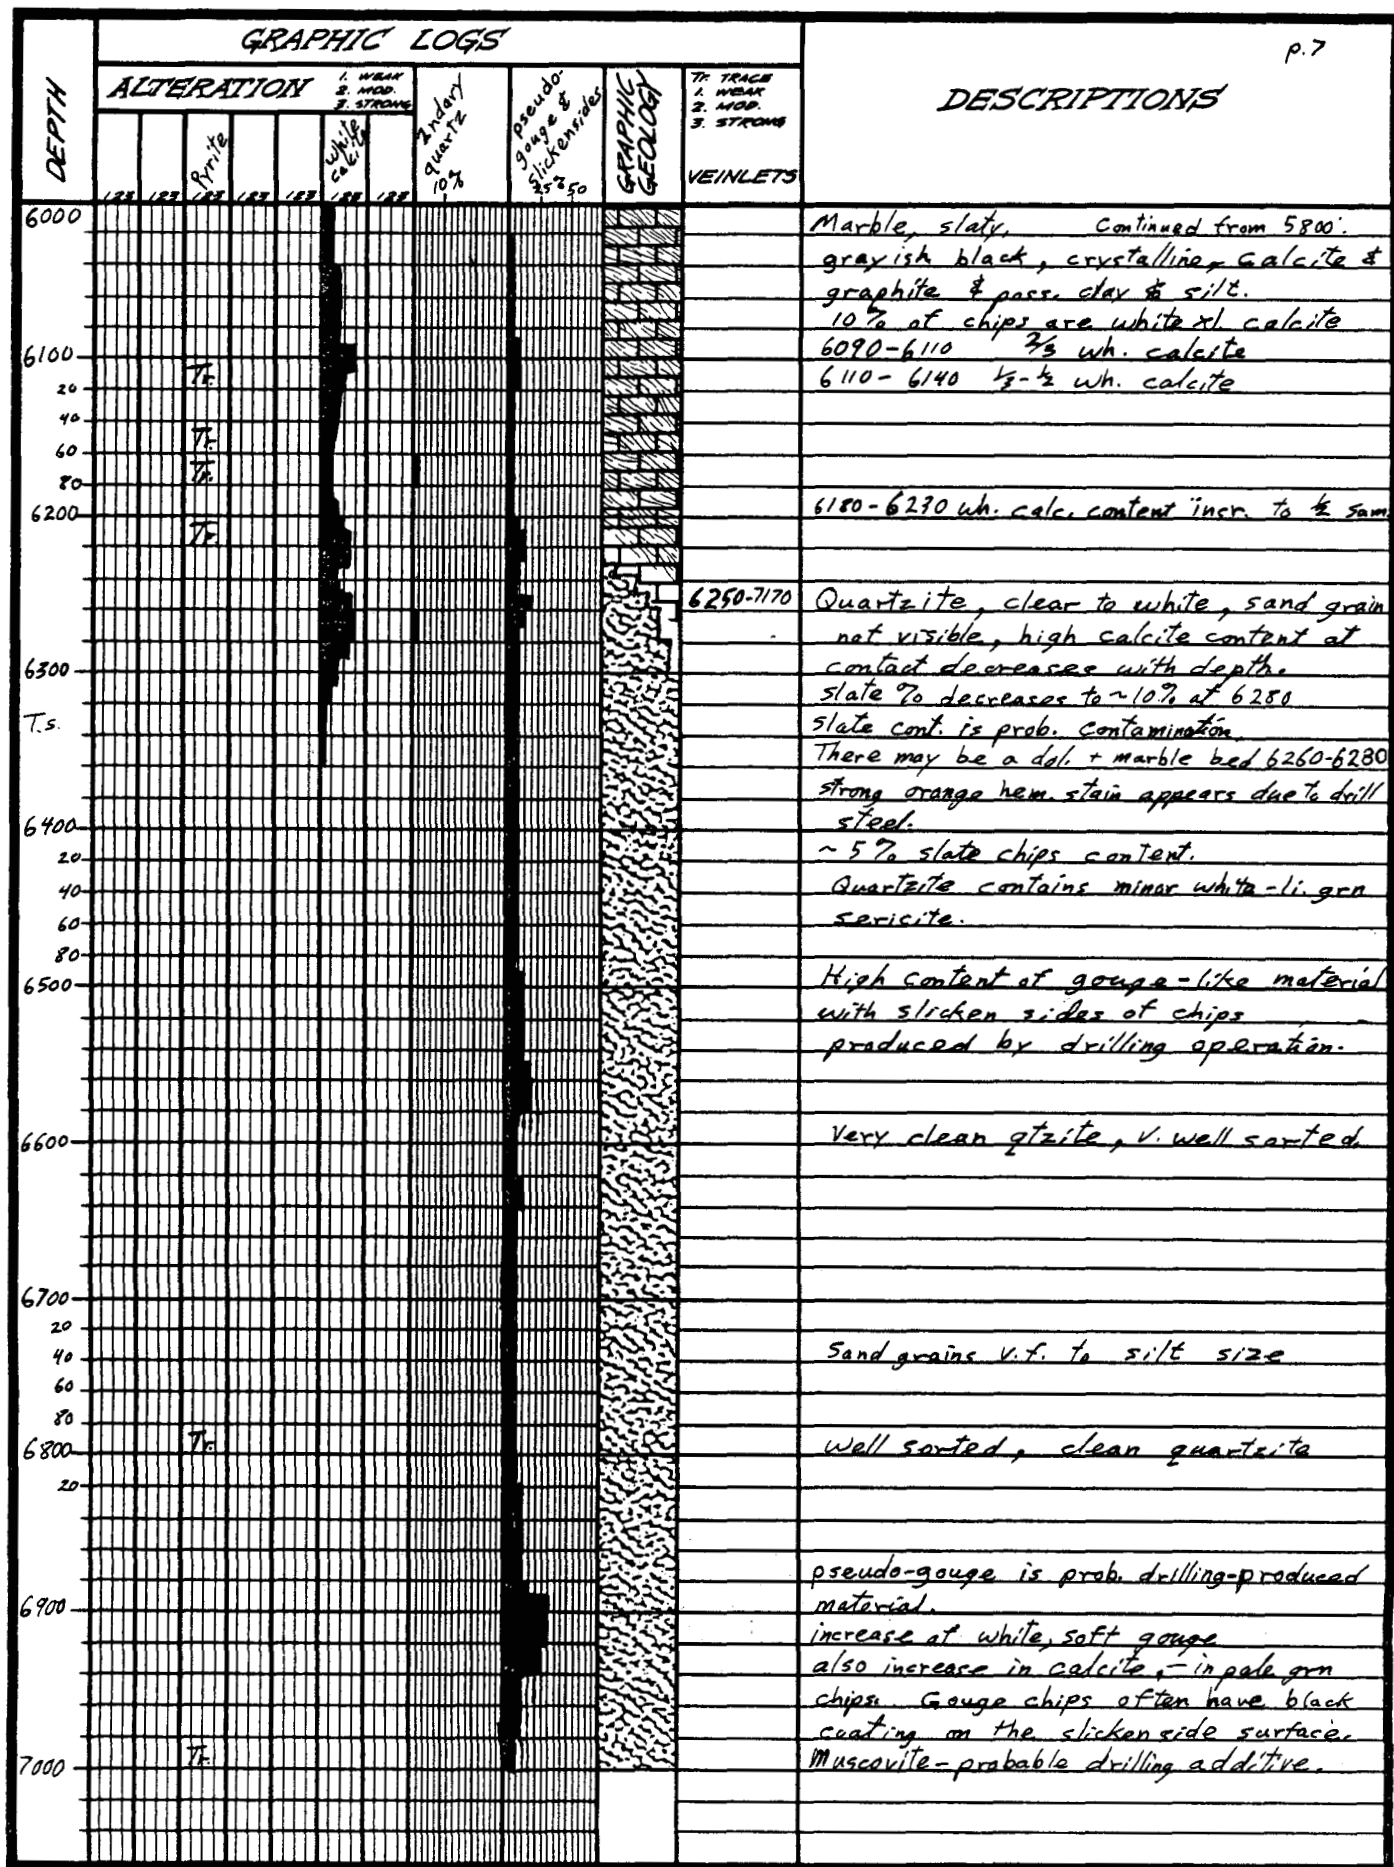 p.7
GRAPHIC LOGS
DEPTH
ALTERATION
1. WEAK
2. MOD.
3. STRONG
Pyrite
white calcite
2ndary quartz
10%
pseudo-gouge & slickensides
25% 50
GRAPHIC GEOLOGY
Tr. TRACE
1. WEAK
2. MOD.
3. STRONG
VEINLETS
DESCRIPTIONS
123 123 123 123 123 123 123
6000
Marble, slaty, Continued from 5800'.
grayish black, crystalline, Calcite &
graphite & poss. clay & silt.
10% of chips are white xl. calcite
6100
6090-6110 2/3 wh. calcite
Tr.
20
6110-6140 1/3-1/2 wh. calcite
40
Tr.
60
Tr.
80
6200
6180-6230 wh. calc. content incr. to 1/2 sam
Tr.
6250-7170
Quartzite, clear to white, sand grain
not visible, high calcite content at
6300
contact decreases with depth.
slate % decreases to ~10% at 6280
T.s.
slate cont. is prob. contamination.
There may be a dol. + marble bed 6260-6280
strong orange hem. stain appears due to drill
6400
steel.
20
~5% slate chips content.
40
Quartzite contains minor white-li. grn
60
sericite.
80
6500
High content of gouge-like material
with slicken sides of chips
produced by drilling operation.
6600
Very clean qtzite, v. well sorted.
6700
20
40
Sand grains v.f. to silt size
60
80
Tr.
6800
well sorted, clean quartzite
20
pseudo-gouge is prob. drilling-produced
6900
material.
increase of white, soft gouge
also increase in calcite, - in pale grn
chips. Gouge chips often have black
coating on the slickenside surface.
Tr.
7000
Muscovite-probable drilling additive.